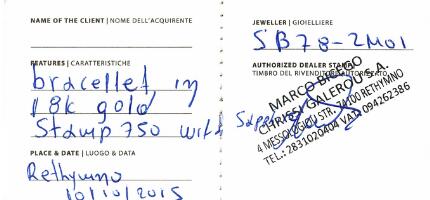 NAME OF THE CLIENT | NOME DELL'ACQUIRENTE
FEATURES | CARATTERISTICHE
bracellet in
18k gold
Stamp 750 with
PLACE & DATE | LUOGO & DATA
Rethymno
10/10/2015
JEWELLER | GIOIELLIERE
SB78-2M01
AUTHORIZED DEALER STAMP
TIMBRO DEL RIVENDITORE AUTORIZZATO
MARCO BICEGO
CHRISSI GALEROU S.A.
4 MESSOLOGIOU STR. 74100 RETHYMNO
TEL.: 2831020404 VAT: 094262386